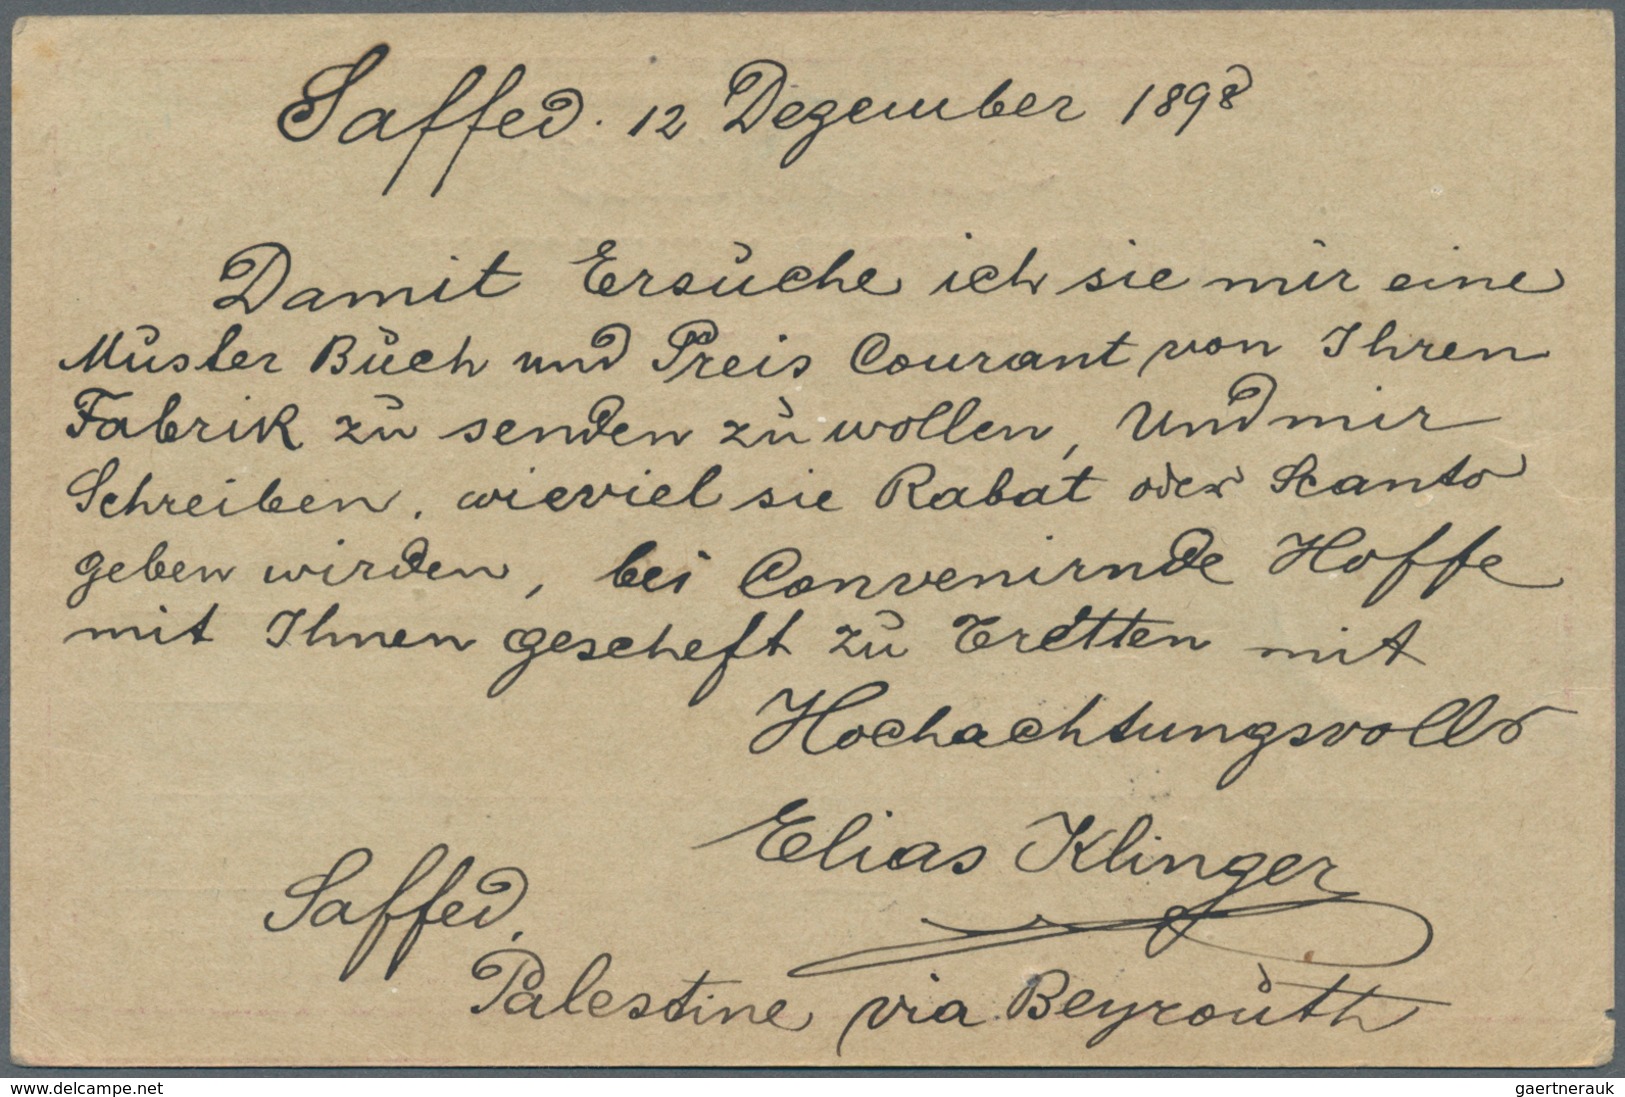 Saffed. 12 Dezember 1898
Damit Ersuche ich sie mir eine
Muster Buch und Preis Courant von Ihren
Fabrik zu senden zu wollen, Und mir
Schreiben. wieviel sie Rabat oder Scanto
geben wirden, bei Convenirnde Hoffe
mit Ihnen gescheft zu Tretten mit
Hochachtungsvolls
Elias Klinger
Saffed.
Palestine via Beyrouth
www.delcampe.net
gaertnerauk